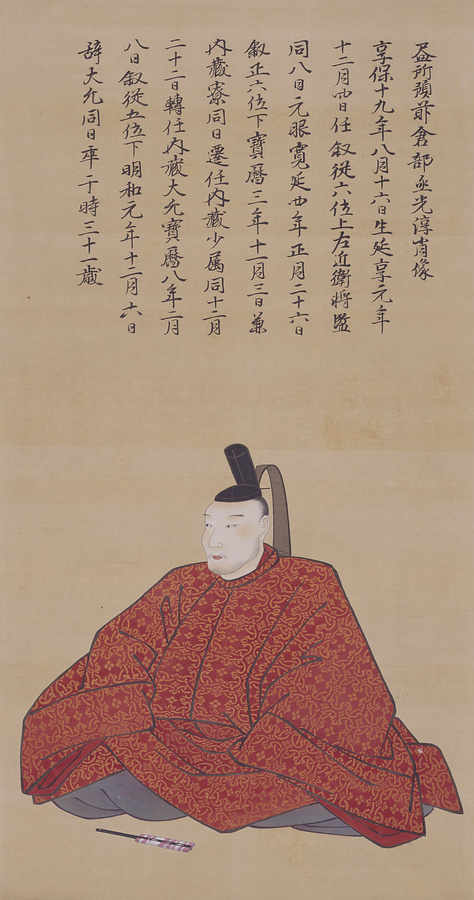 昼所預苅倉部丞光淳肖像
享保十九年八月十六日生延享元年
十二月四日任叙従六位上左近衛将監
同八日元服寛延四年正月二十六日
叙正六位下寶暦三年十一月三日兼
内蔵寮同日遷任内蔵少属同十二月
二十二日轉任内蔵大允寶暦八年二月
八日叙従五位下明和元年十二月六日
辞大允同日卒于時三十一歳